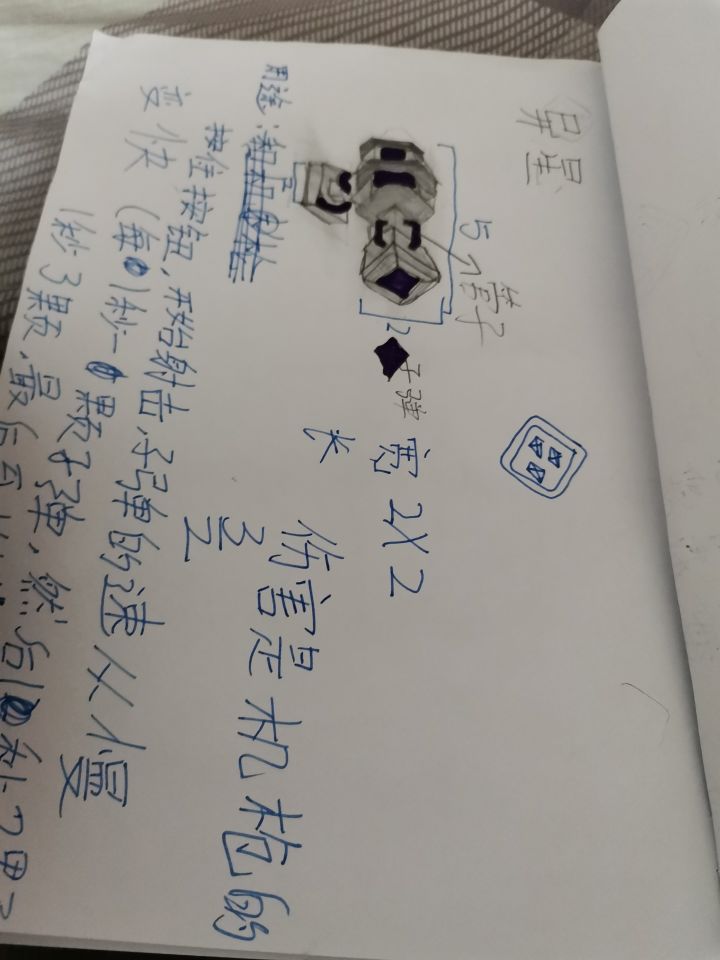 异星
5
管子
2
子弹
宽 2X2
长
伤害是机枪的
3/2
用途：
按住按钮，开始射击，子弹的速从慢
变快（每1秒一颗子弹，然后1秒2颗
1秒3颗，最后